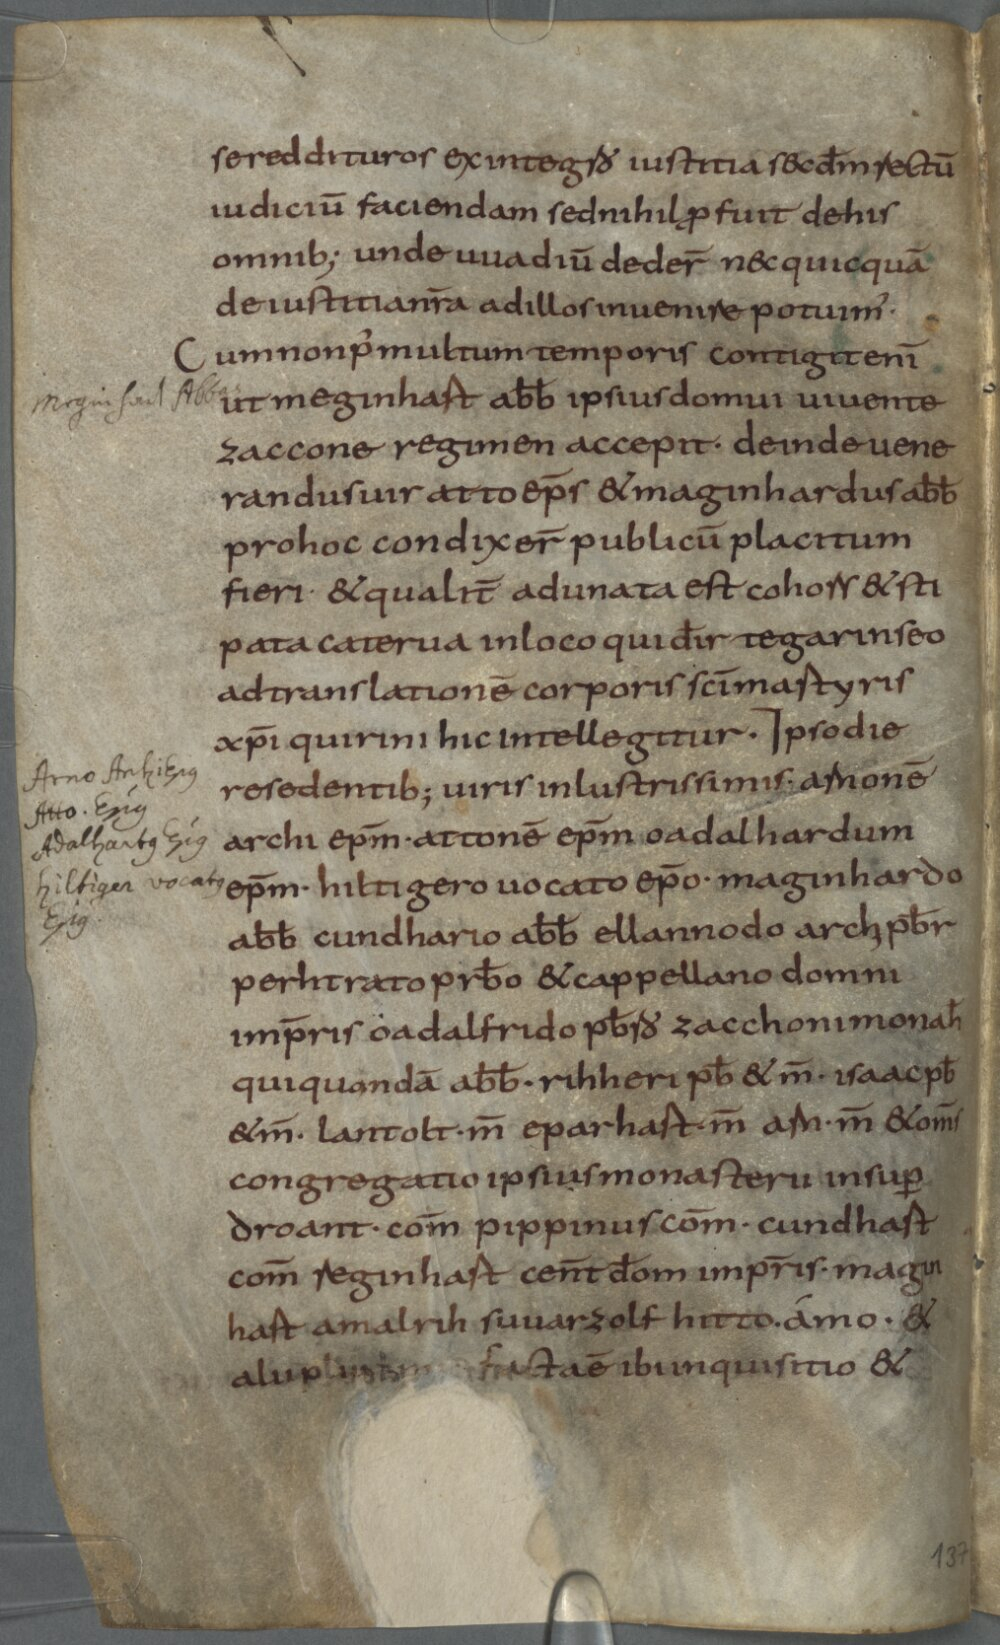 se reddituros ex integro iustitia secdm rectū
iudiciū faciendam sed nihil ꝓfuit de his
omnib; unde uuadiū deder̄ nec quicquā
de iustitia nr̄a ad illos inuenire potuim᾽.
Cum non p᾽ multum temporis contigit eni᾽
Meginhart Abba
ut meginhart abb̄ ipsius domui uiuente
zaccone regimen accepit. deinde uene
randus uir atto ep̄s & maginhardus abb̄
pro hoc condixer̄ publicū placitum
fieri. & qualit̄ adunata est cohors & sti
pata caterua in loco qui dir̄ tegarinseo
ad translationē corporis sc̄i martyris
xp̄i quirini hic intellegitur. Ipso die
resedentib; uiris inlustrissimis. arnonē
Arno Archiep̄s
Atto. Ep̄s
Adalhart9 Ep̄s
hiltiger vocat9
Ep̄s.
archi ep̄m. attonē ep̄m oadalhardum
ep̄m. hiltigero uocato ep̄o. maginhardo
abb̄ cundhario abb̄ ellannodo arch pb̄r
perhtrato prb̄o & cappellano domni
imp̄ris oadalfrido pb̄ro zacchoni monah̄
qui quondā abb̄. rihheri pb̄ & m̄. isaac pb̄
& m̄. lantolt. m̄ eparhart. m̄ arn. m̄ & om̄s
congregatio ipsius monasterii insuꝑ
droant. com̄ pippinus com̄. cundhart
com̄ reginhart cent̄ dom̄ imp̄ris. magin
hart amalrih suuarzolf hitto. ámo. &
alii plurimi facta ē ibi inquisitio &
137